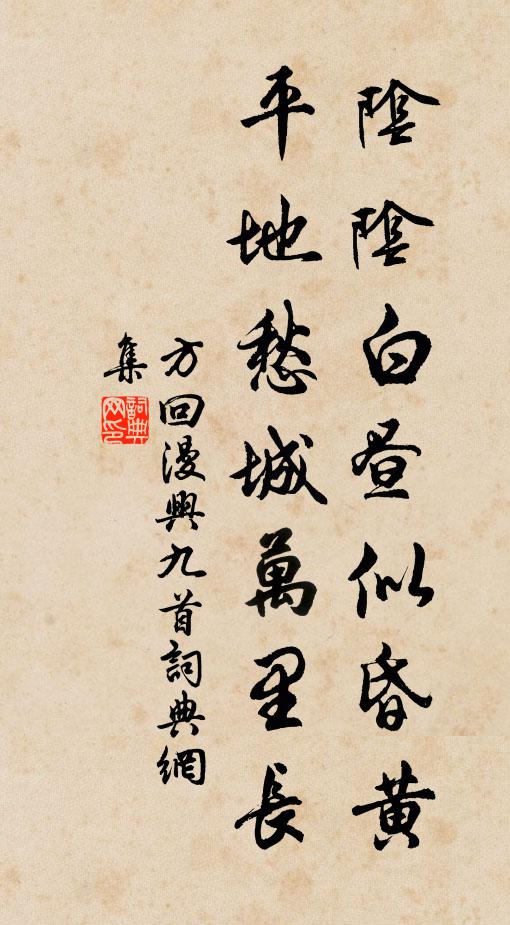 陰陰白昼似昏黄
平地愁城萬里長
方回漫興九首詞典網
集
詞典網印